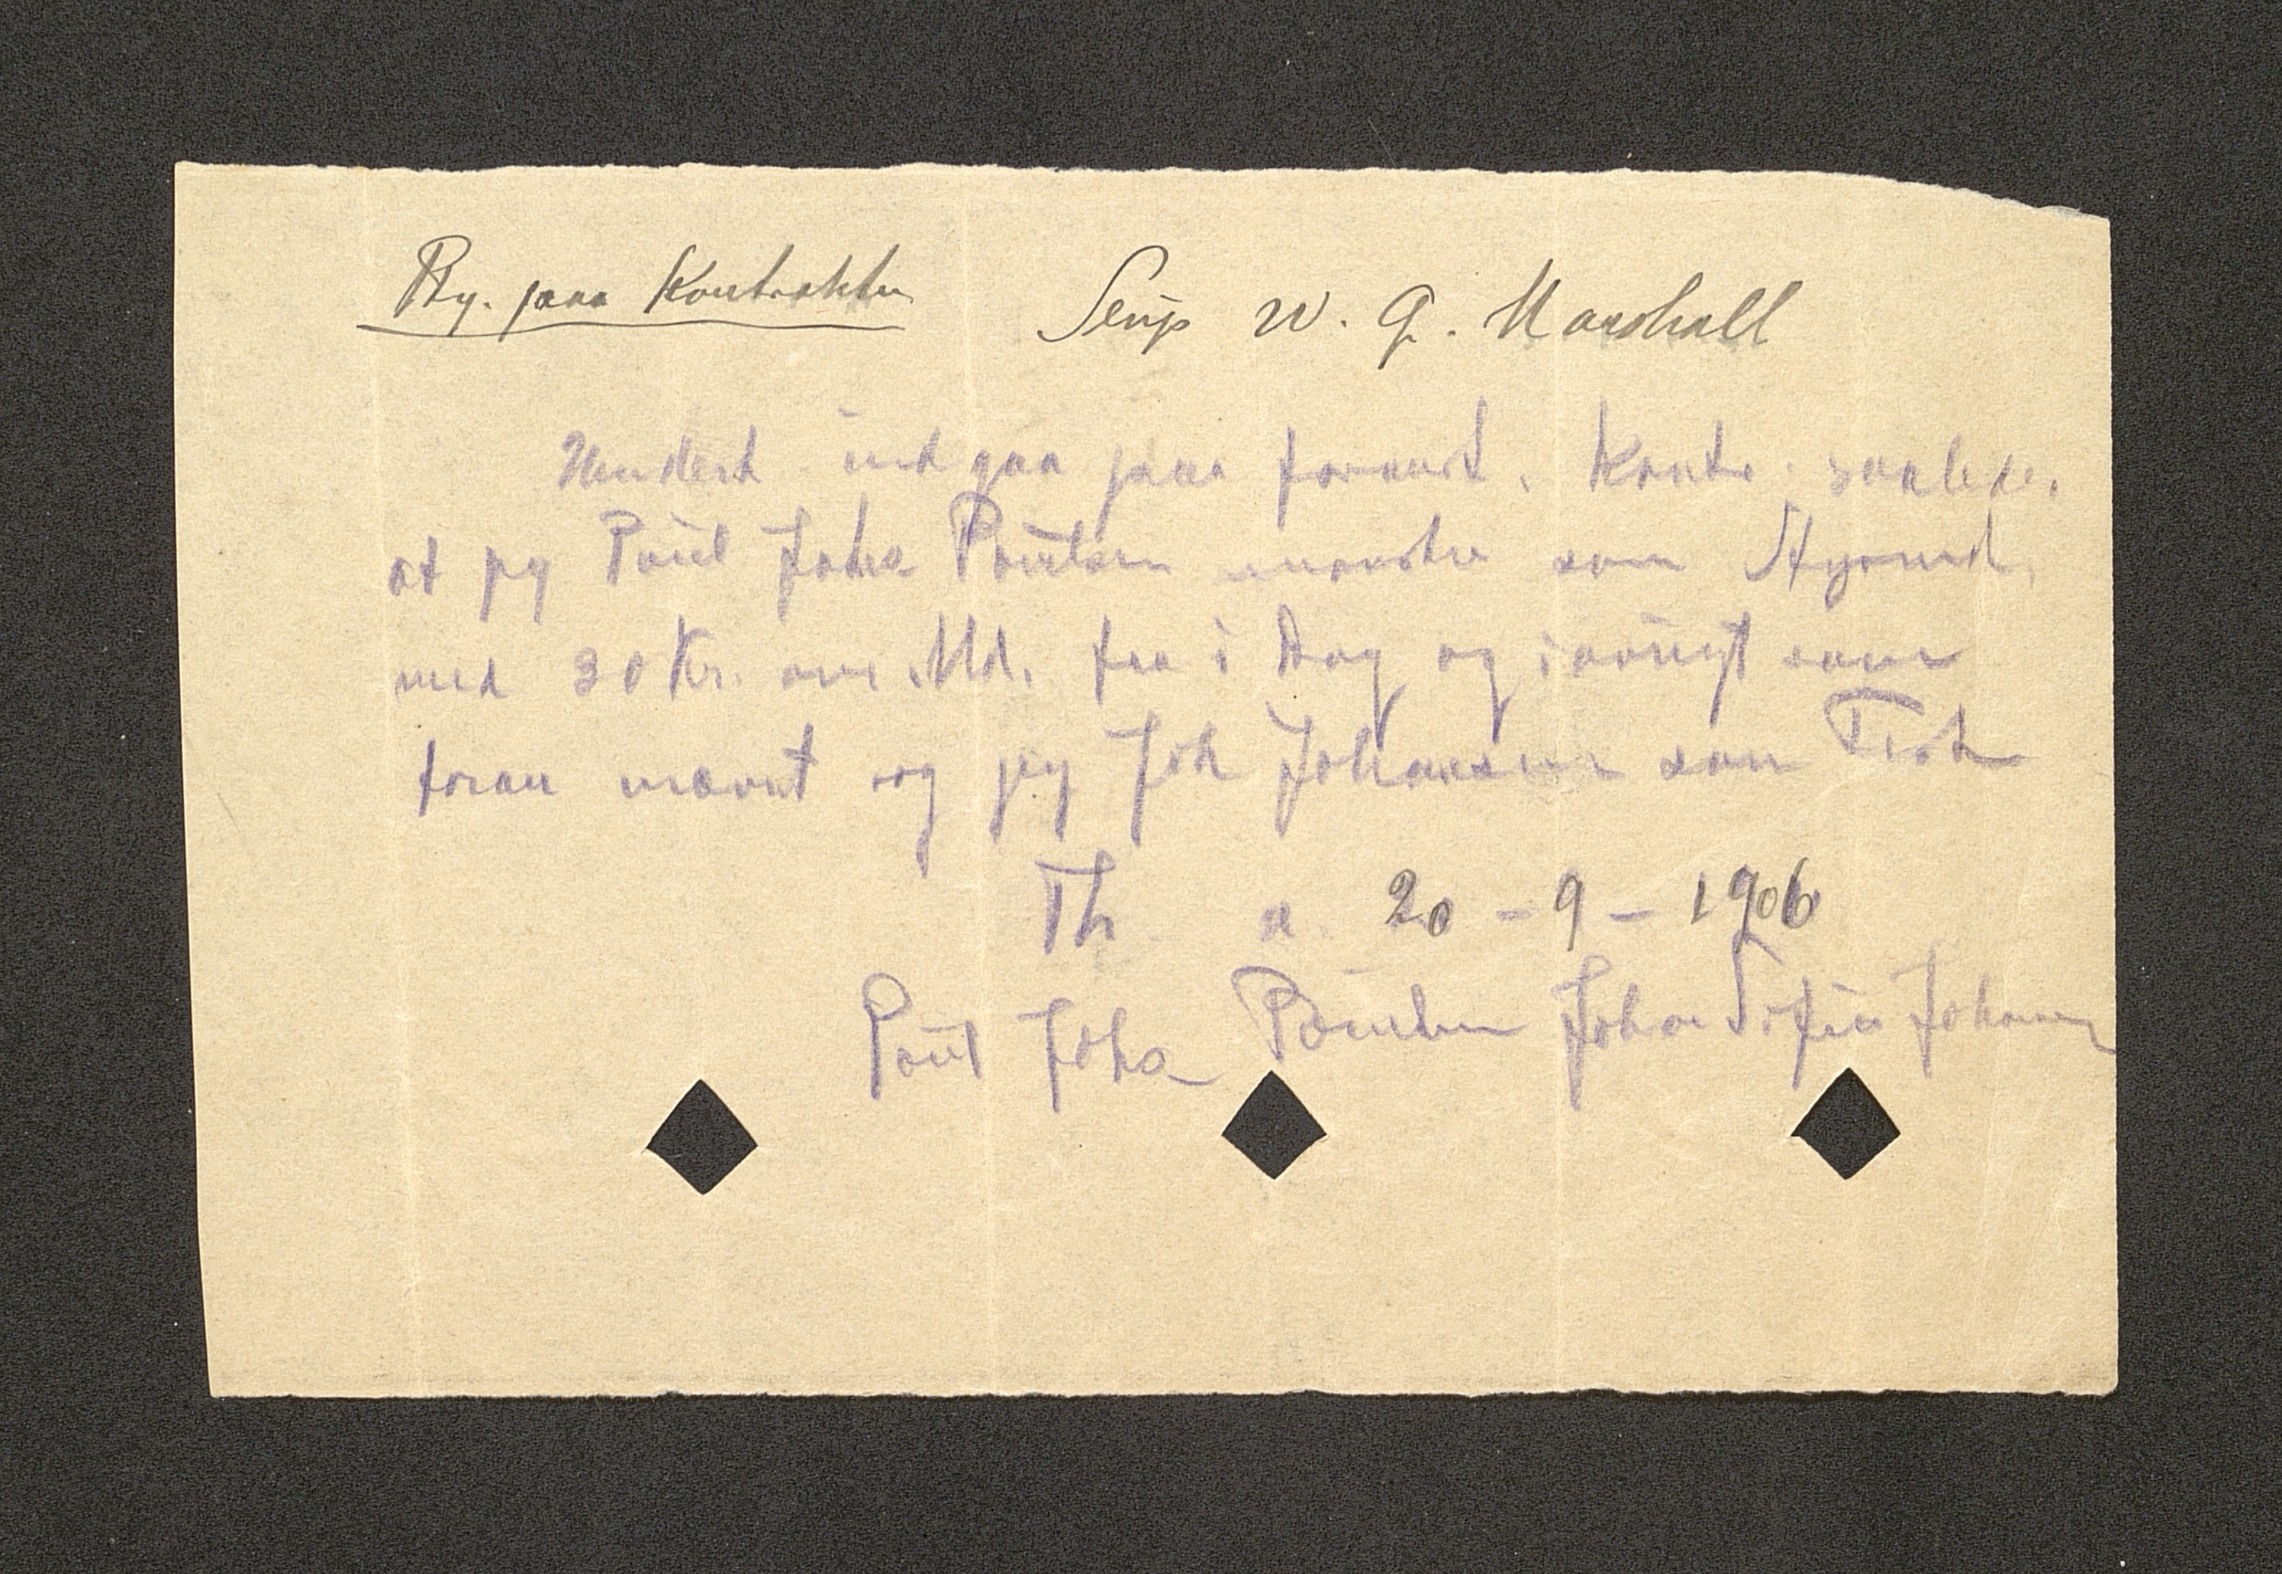 Ry. paa Kontrakten Slup W. G. Marshall
indgaa paa Kontr. saaledes
at jeg Poul Johs Poulsen mønstre som Styrmd.
med 30 Kr. om Md. fra i Dag og iøvrigt som
foran nævnt og jeg Joh Johansen som
Th d. 20 - 9 - 1906
Poul Johs Poulsen Johan Johansen